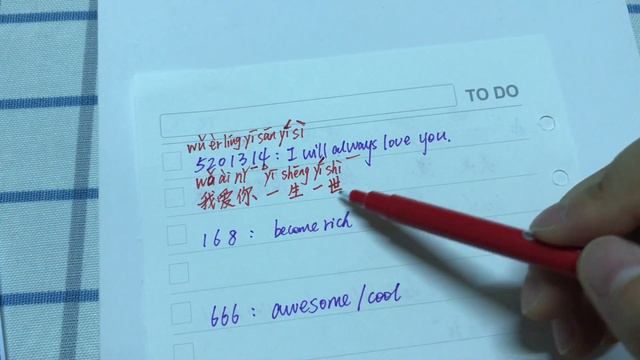 TO DO
wǔ èr líng yī sān yī sì
5201314: I will always love you.
wǒ ài nǐ yī shēng yí shì
我爱你、一生一世
168: become rich
666: awesome/cool